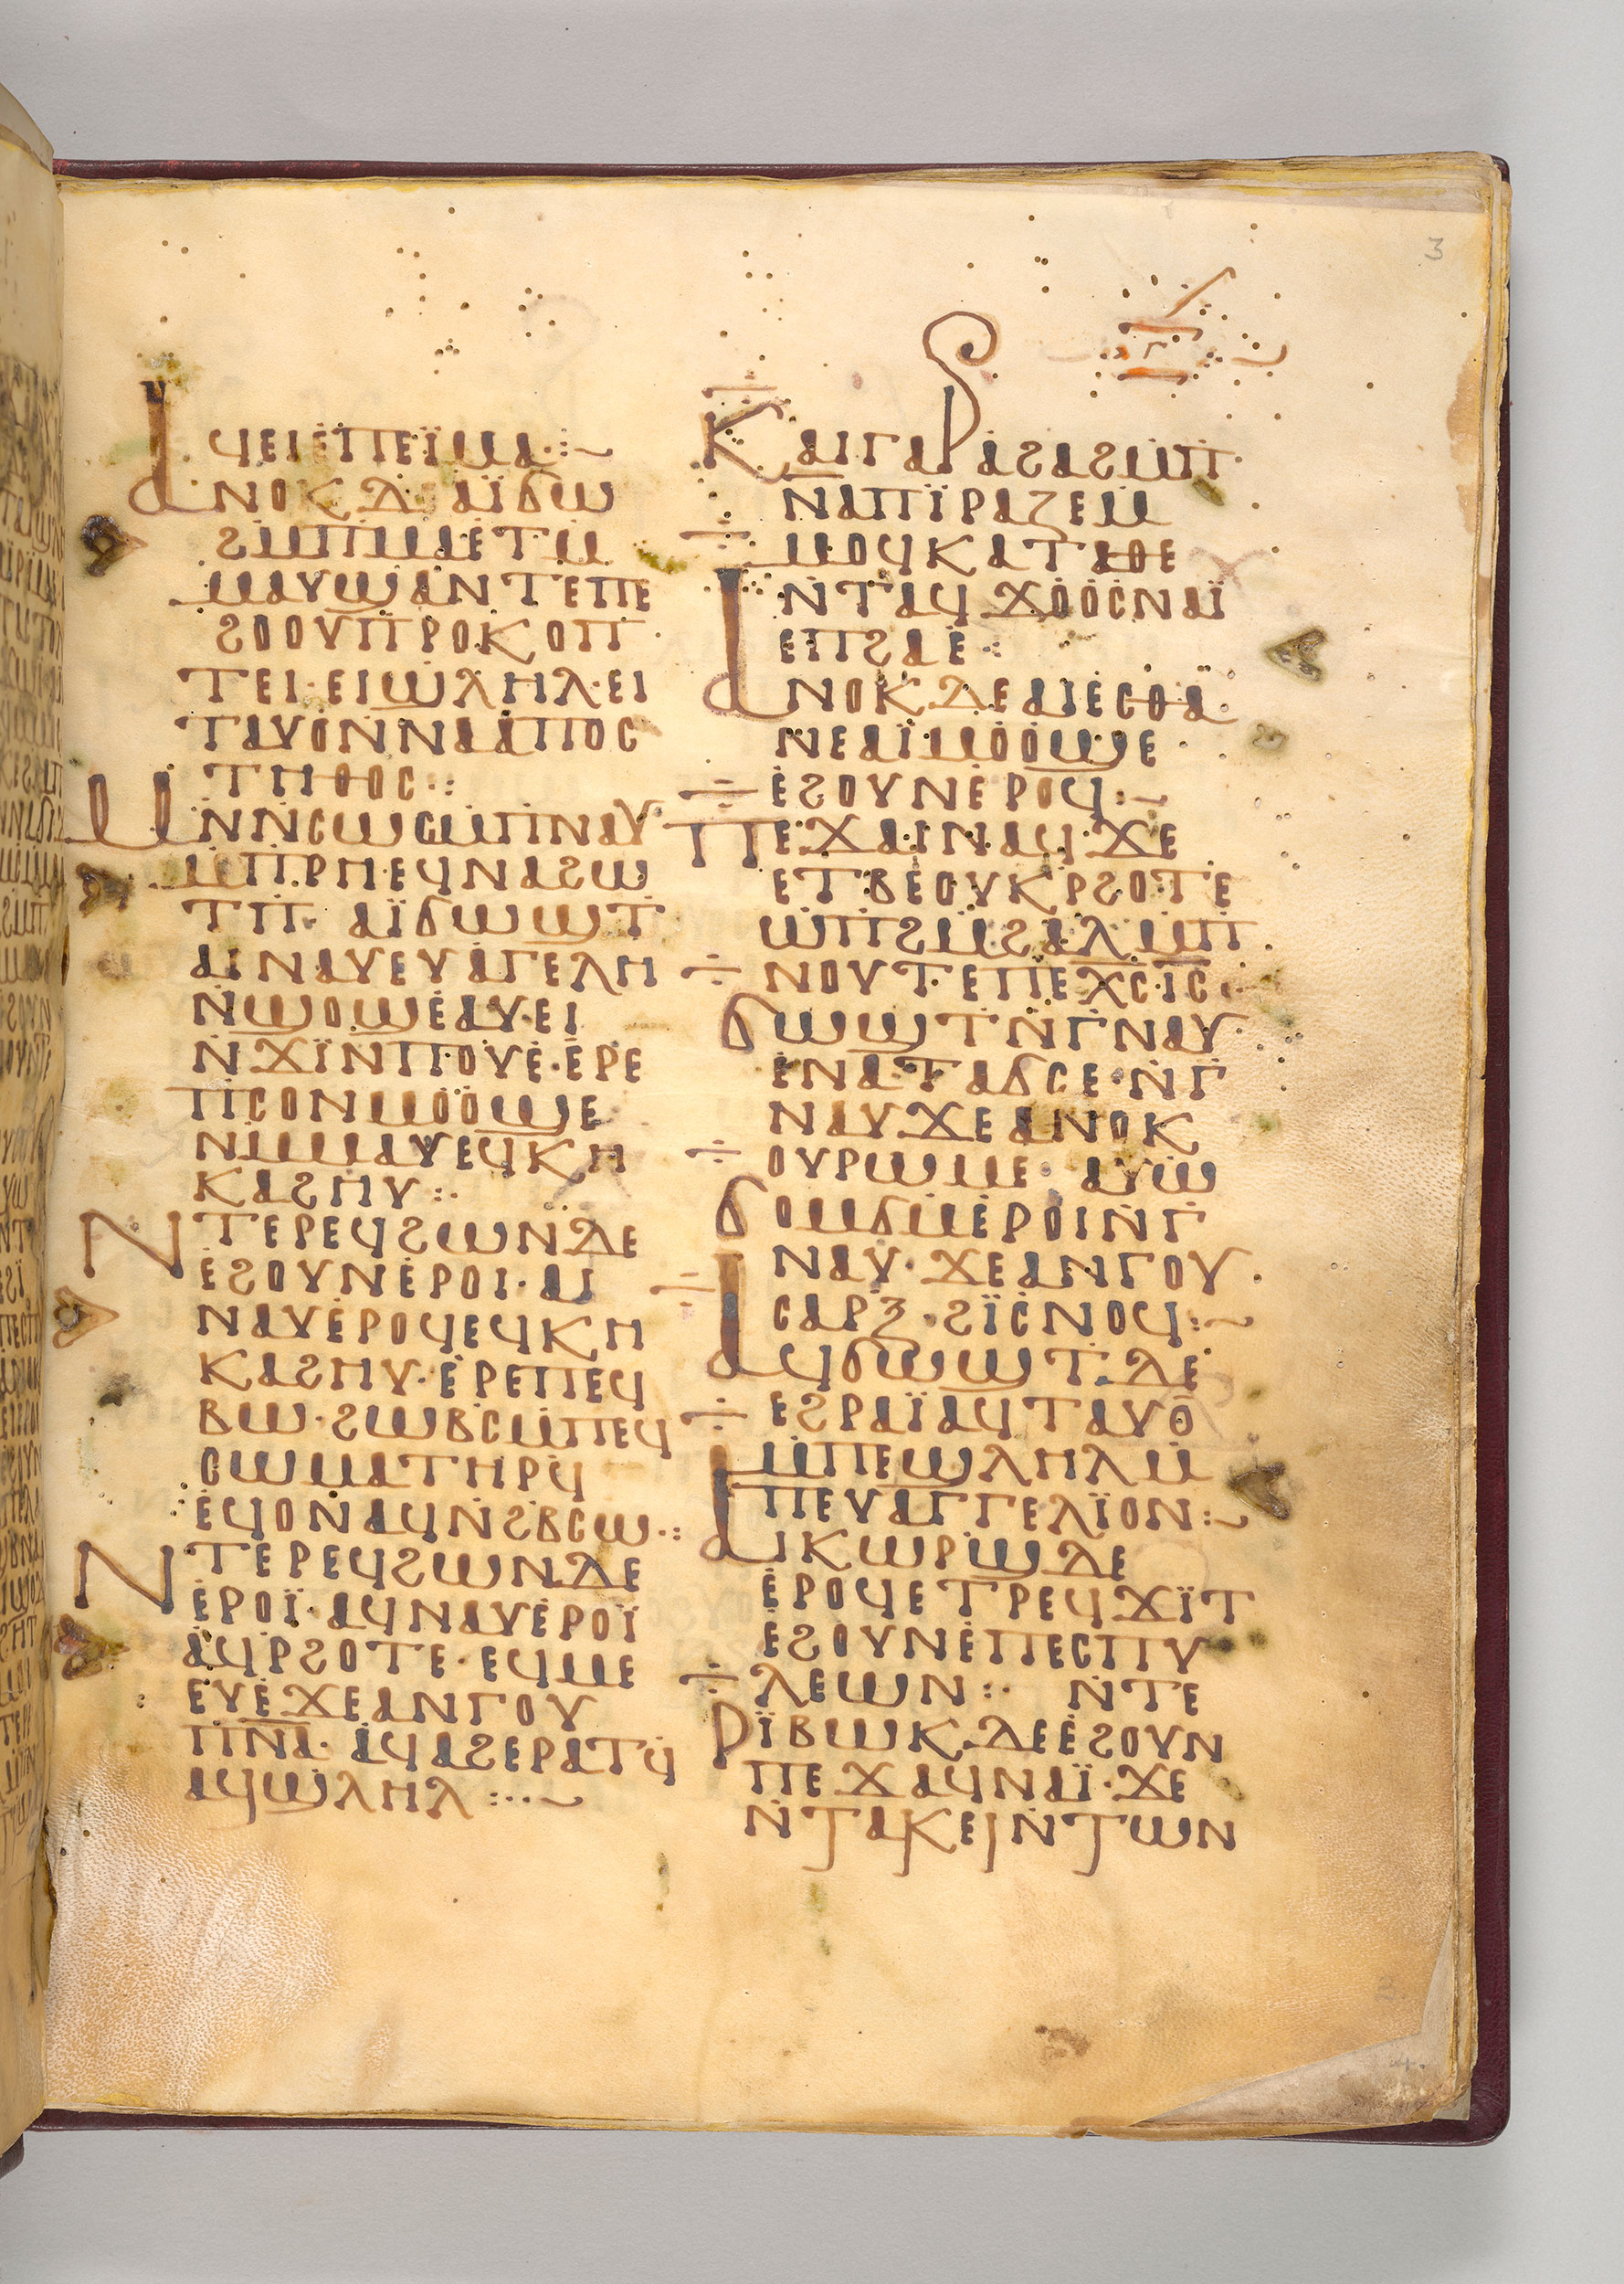 3
ⲅ
ϥⲉⲓⲉ̇ⲡⲉⲓ̈ⲙⲁ
ⲁⲛⲟⲕ ⲇ ⲁⲓ̈ϭⲱ
ϩⲙⲡⲙⲁⲉⲧⲙ
ⲙⲁⲩϣⲁⲛⲧⲉⲡⲉ
ϩⲟⲟⲩⲡⲣⲟⲕⲟⲡ
ⲧⲉⲓ·ⲉⲓϣⲗⲏⲗ·ⲉⲓ
ⲧⲁⲩⲟⲛⲛⲁⲁⲡⲟⲥ
ⲧⲏⲑⲟⲥ·:
ⲙⲛⲛⲥⲱⲥⲙⲡⲛⲁⲩ
ⲙⲡⲣⲏ·ⲉϥⲛⲁϩⲱ
ⲧⲡ· ⲁⲓ̈ϭⲱϣⲧ
ⲁⲓⲛⲁⲩⲉⲩⲁⲅⲉⲗⲏ
ⲛϣⲟϣⲉⲁⲩ·ⲉⲓ
ⲛϫⲓ̈ⲛⲡⲟⲩⲉ·ⲉⲣⲉ
ⲡⲥⲟⲛⲙⲟⲟϣⲉ
ⲛⲙⲙⲁⲩⲉϥⲕⲏ
ⲕⲁϩⲏⲩ:·
ⲛⲧⲉⲣⲉϥϩⲱⲛⲇⲉ
ⲉϩⲟⲩⲛⲉⲣⲟⲓ·ⲁⲓ
ⲛⲁⲩⲉⲣⲟϥⲉϥⲕⲏ
ⲕⲁϩⲏⲩ·ⲉⲣⲉⲡⲉϥ
ⲃⲱ·ϩⲱⲃⲥⲙⲡⲉϥ
ⲥⲱⲙⲁⲧⲏⲣϥ
ⲉϥⲟⲛⲁϥⲛϩⲃⲥⲱ·:
ⲛⲧⲉⲣⲉϥϩⲱⲛⲇⲉ
ⲉⲣⲟⲓ̈·ⲁϥⲛⲁⲩⲉⲣⲟⲓ̈
ⲁϥⲣϩⲟⲧⲉ·ⲉϥⲙⲉ
ⲉⲩⲉϫⲉⲁⲛⲅⲟⲩ
ⲡⲛⲁ·ⲁϥⲁϩⲉⲣⲁⲧϥ
ⲁϥϣⲗⲏⲗ:··
ⲕⲁⲓⲅⲁⲣⲁϩⲁϩⲙⲡ
ⲛⲁⲡⲓ̈ⲣⲁⲍⲉⲙ
ⲙⲟϥⲕⲁⲧⲁⲑⲉ
ⲛⲧⲁϥϫⲟⲟⲥⲛⲁⲓ̈
ⲉⲡϩⲁⲉ:
ⲁⲛⲟⲕⲇⲉⲁⲓⲉⲥⲑⲁ
ⲛⲉⲁⲓ̈ⲙⲟⲟϣⲉ·
ⲉϩⲟⲩⲛⲉⲣⲟϥ:
ⲡⲉϫⲁⲓⲛⲁϥ·ϫⲉ
ⲉⲧⲃⲉⲟⲩⲕⲣϩⲟⲧⲉ
ⲱⲡϩⲙϩⲁⲗⲙⲡ
ⲛⲟⲩⲧⲉⲡⲉⲭⲥ·ⲓⲥ
ϭⲱϣⲧⲛⲅⲛⲁⲩ
ⲉⲛⲁⲧⲁϭⲥⲉ·ⲛⲅ
ⲛⲁⲩϫⲉⲁⲛⲟⲕ
ⲟⲩⲣⲱⲙⲉ· ⲁⲩⲱ
ϭⲟⲙϭⲙⲉⲣⲟⲓⲛⲅ
ⲛⲁⲩ·ϫⲉⲁⲛⲅⲟⲩ·
ⲥⲁⲣⲝ·ϩⲓ̈ⲥⲛⲟϥ:
ⲁϥϭⲱϣⲧ·ⲇⲉ
ⲉϩⲣⲁⲓ̈ⲁϥⲧⲁⲩⲟ
ⲙⲡⲉϣⲗⲏⲗⲙ
ⲡⲉⲩⲁⲅⲅⲉⲗⲓ̈ⲟⲛ:
ⲁⲓⲕⲱⲣϣⲇⲉ
ⲉⲣⲟϥⲉⲧⲣⲉϥϫⲓ̈ⲧ
ⲉϩⲟⲩⲛⲉⲡⲉⲥⲡⲩ
ⲗⲉⲱⲛ:· ⲛⲧⲉ
ⲣⲓ̈ⲃⲱⲕⲇⲉⲉϩⲟⲩⲛ
ⲡⲉϫⲁϥⲛⲁⲓ̈·ϫⲉ
ⲛⲧⲁⲕⲉⲓⲛⲧⲱⲛ